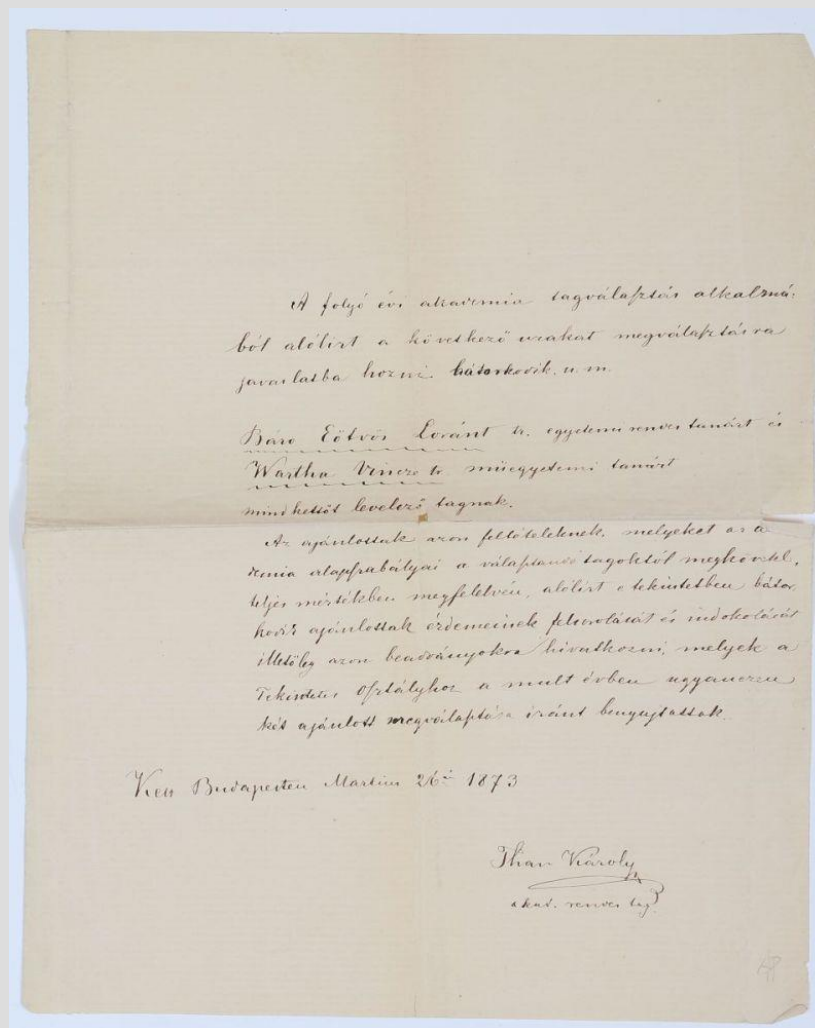 A folyó évi akademia tagválasztás alkalmá-
ból alólirt a következő urakat megválasztásra
javaslatba hozni bátorkodik. u. m.
Báro Eötvös Loránt tr. egyetemi rendes tanárt és
Wartha Vincze tr. műegyetemi tanárt
mindkettőt levelező tagnak.
Az ajánlottak azon feltételeknek, melyeket az a
demia alapszabályai a választandó tagoktól megkövetel,
teljes mértékben megfelelvén, alólirt e tekintetben bátor
kodik ajánlottak érdemeinek felsorolását és indokolását
illetőleg azon beadványokra hivatkozni, melyek a
Tekintetes Osztályhoz a mult évben ugyanezen
két ajánlott megválasztása iránt benyujtattak.
Kelt Budapesten Martius 26án 1873
Than Károly
akad. rendes tag.